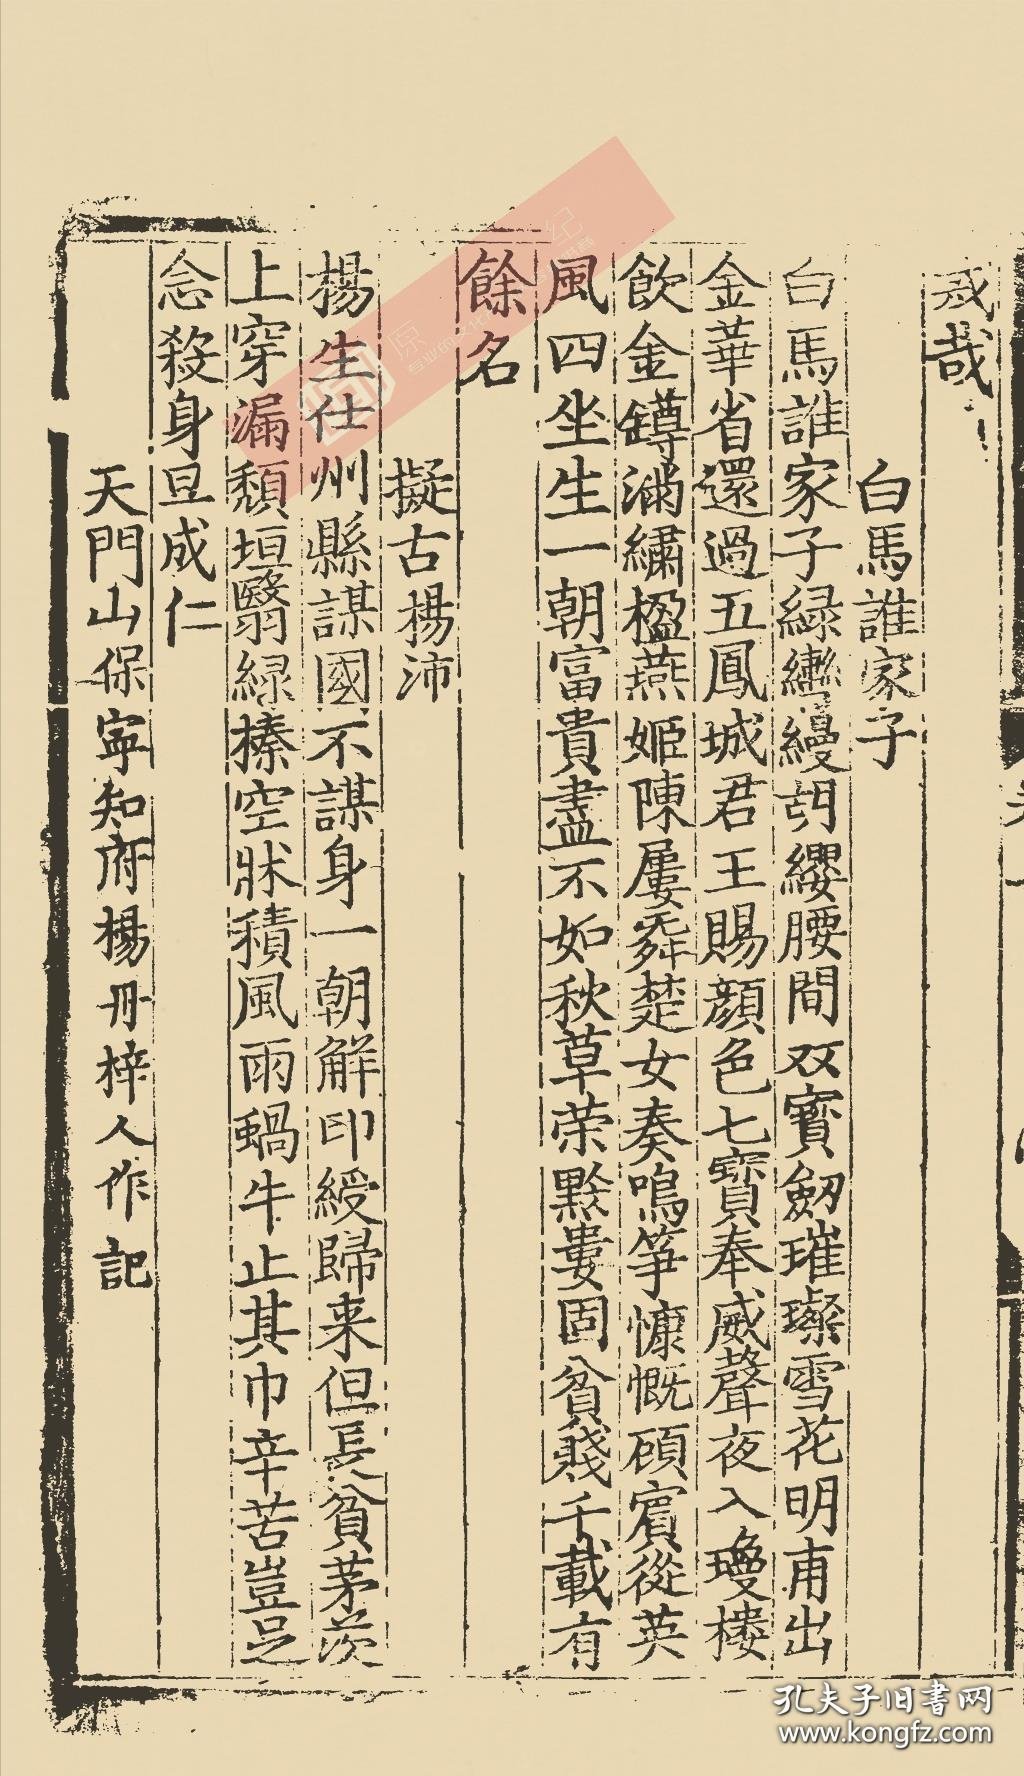 哉
白馬誰家子
白馬誰家子綠轡縵胡纓腰間双寳劒璀璨雪花明甫出
金華省還過五鳳城君王賜顔色七寳奉威聲夜入瓊樓
飲金罇滿繡楹燕姬陳屢舞楚女奏鳴筝慷慨頋賔從英
風四坐生一朝富貴盡不如秋草荣黔婁固貧賤千載有
餘名
擬古楊沛
楊生仕州縣謀國不謀身一朝觧印綬歸来但長貧茅茨
上穿漏頽垣翳緑榛空牀積風雨蝸牛止其巾辛苦豈足
念殺身且成仁
天門山保寜知府楊冊梓人作記
孔夫子旧書网
www.kongfz.com